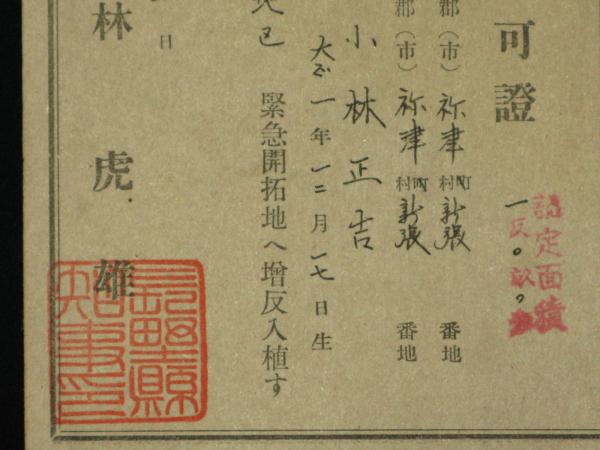 可證
認定面積
一反〇畝〇
郡(市)祢津町村新張 番地
郡(市)祢津町村新張 番地
小林正吉
大正一年一二月一七日生
緊急開拓地へ增反入植す
日
林虎雄
長野縣知事印